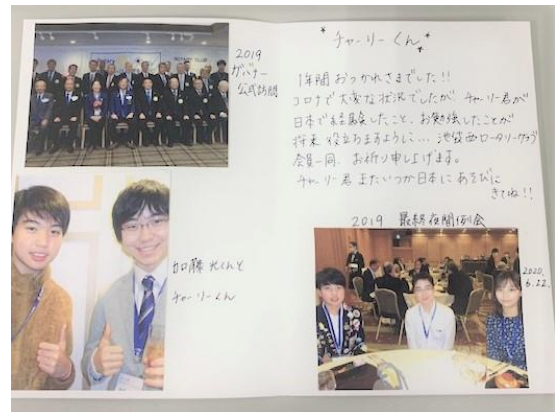 2019
ガバナー
公式訪問
加藤光くんと
チャーリーくん
*チャーリーくん*
1年間おつかれさまでした!!
コロナで大変な状況でしたが、チャーリー君が
日本で経験したこと、お勉強したことが
将来役立ちますように... 池袋西ロータリークラブ
会員一同、お祈り申し上げます。
チャーリー君またいつか日本にあそびに
きてね!!
2019 最終夜間例会
2020.
6.22.